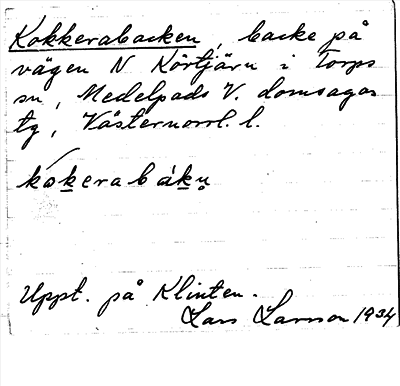 Kokkerabacken, backe på
vägen N Körtjärn i Torps
sn, Medelpads V. domsagas
tg, Västernorrl. l.
kokerabáku̥
Uppt. på Klinten.
Lars Larsson 1934